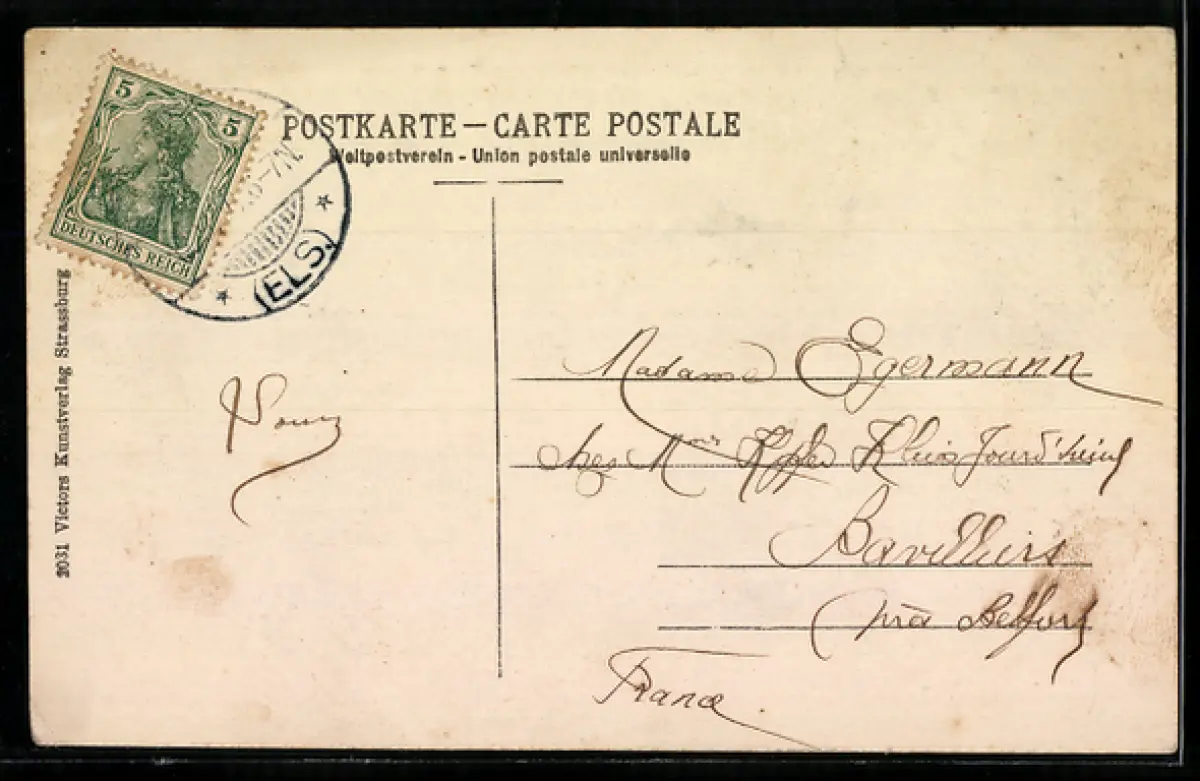 5 5
DEUTSCHES REICH
6-7N.
(ELS.)
POSTKARTE — CARTE POSTALE
Weltpostverein - Union postale universelle
2031 Victors Kunstverlag Strassburg
Madame Egermann
chez
Bavilliers
près Belfort
France